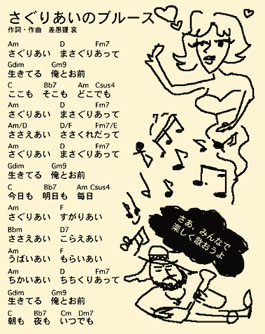 さぐりあいのブルース
作詞・作曲 差愚狸 哀
Am D Fm7
さぐりあい まさぐりあって
Gdim Gm9
生きてる 俺とお前
C Bb7 Am Csus4
ここも そこも どこでも
Am D Fm7
さぐりあい まさぐりあって
Am/D D/F Fm7/E
ささえあい ささくれだって
Gdim Gm9
さぐりあい まさぐりあって
Gdim Gm9
生きてる 俺とお前
C Bb7 Am Csus4
今日も 明日も 毎日
Am F
さぐりあい すがりあい
Bbm D7
ささえあい こらえあい
Am F
うばいあい もらいあい
Am D Fm7
ちかいあい ちちくりあって
Gdim Gm9
生きてる 俺とお前
C Bb7 Cm Dm7
朝も 夜も いつでも
さあ、みんなで
楽しく歌おうよ